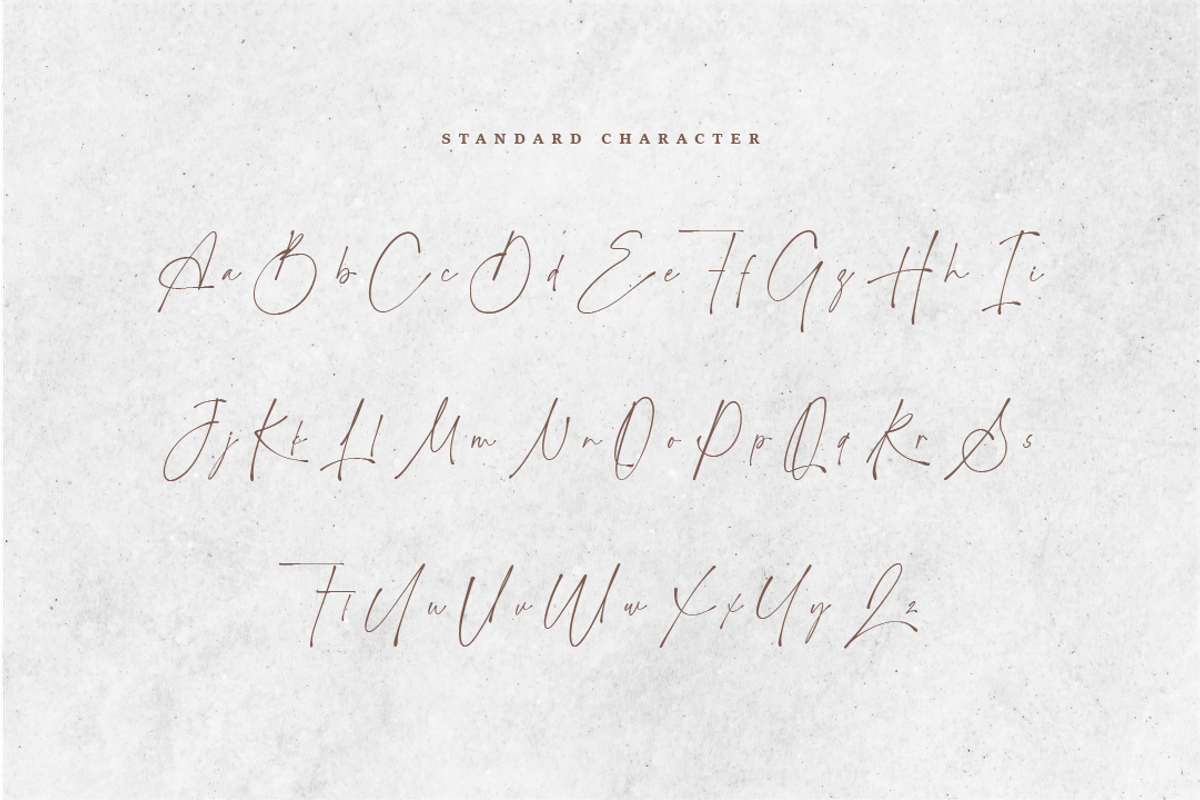 STANDARD CHARACTER
Aa Bb Cc Dd Ee Ff Gg Hh Ii
Jj Kk Ll Mm Nn Oo Pp Qq Rr Ss
Tt Uu Vv Ww Xx Yy Zz